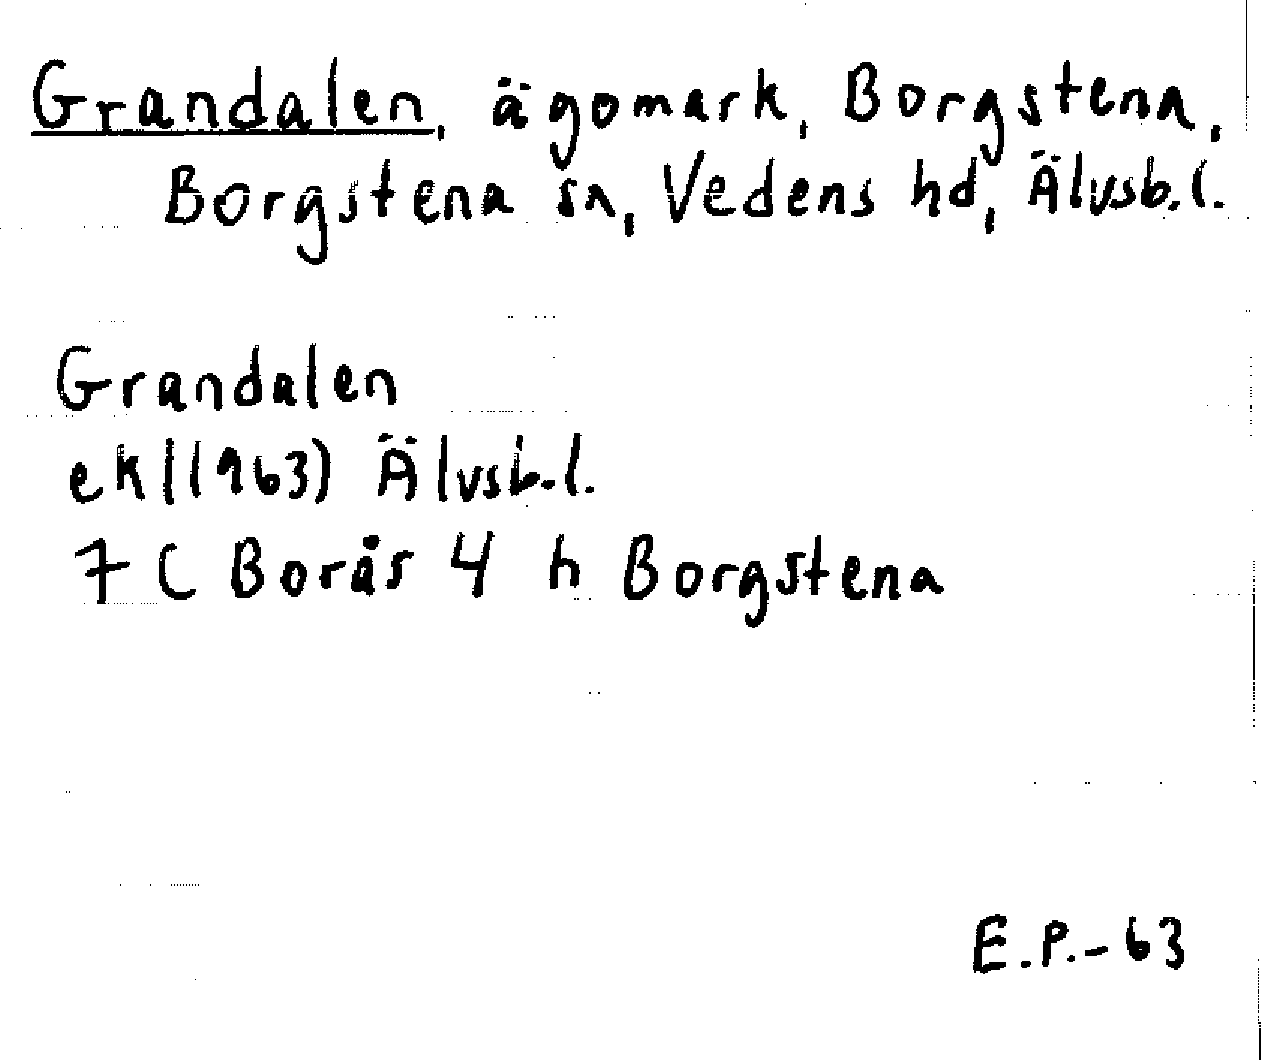 Grandalen, ägomark, Borgstena,
Borgstena sn, Vedens hd, Älvsb.l.
Grandalen
ek (1963) Älvsb.l.
7 C Borås 4 h Borgstena
E.P.-63